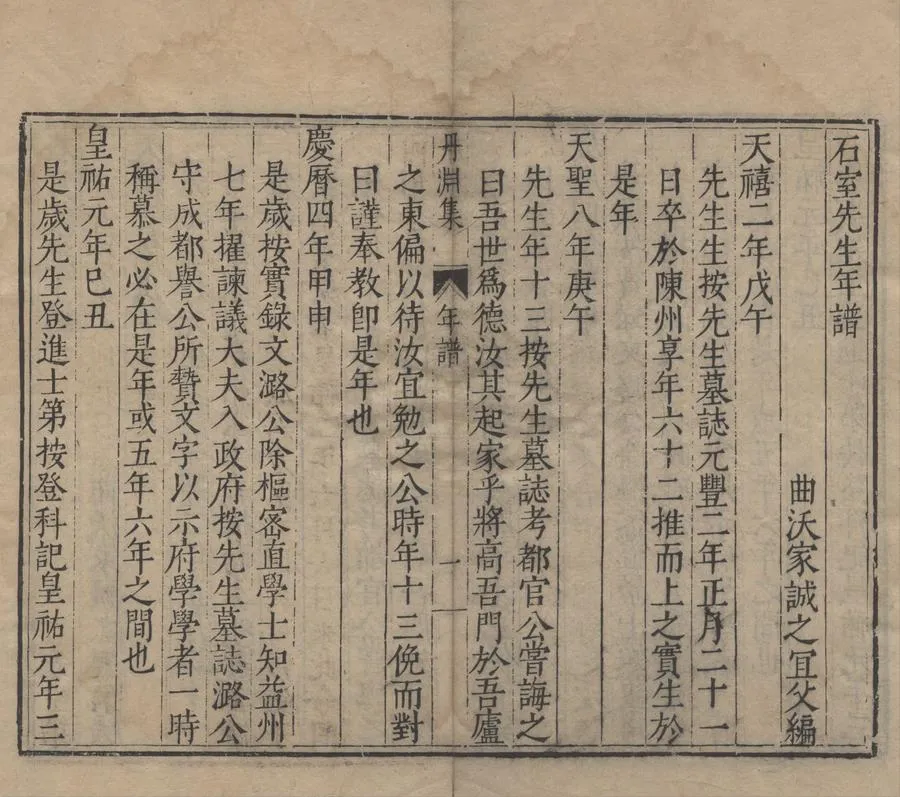 石室先生年譜
曲沃家誠之宜父編
天禧二年戊午
先生生按先生墓誌元豐二年正月二十一
日卒於陳州享年六十二推而上之實生於
是年
天聖八年庚午
先生年十三按先生墓誌考都官公嘗誨之
曰吾世爲德汝其起家乎將高吾門於吾廬
丹淵集 年譜 一
之東偏以待汝宜勉之公時年十三俛而對
曰謹奉教卽是年也
慶曆四年甲申
是歲按實錄文潞公除樞密直學士知益州
七年擢諫議大夫入政府按先生墓誌潞公
守成都譽公所贄文字以示府學學者一時
稱慕之必在是年或五年六年之間也
皇祐元年巳丑
是歲先生登進士第按登科記皇祐元年三